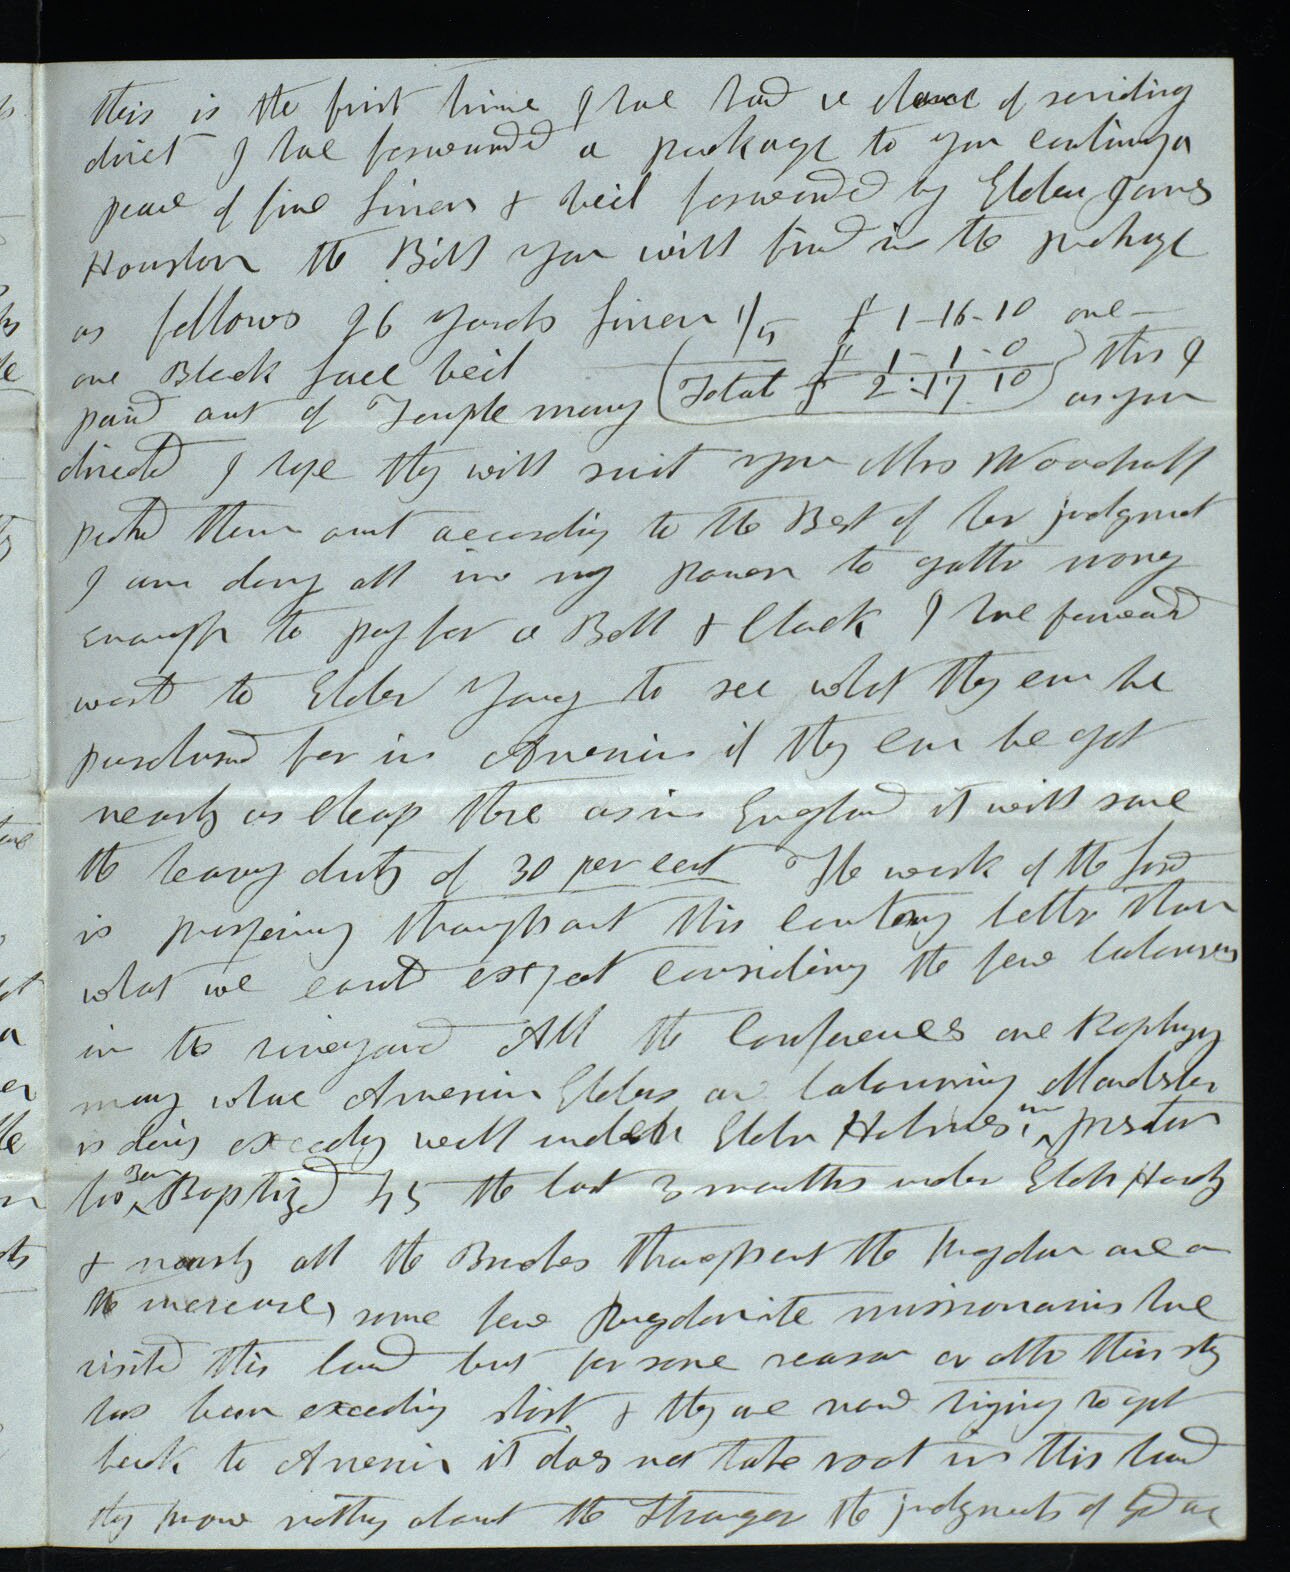 this is the first time I have had a chance of sending
direct I have forwarded a package to you containing a
peace of fine linen & veil forwarded by Elder James
Houston the Bill you will find in the package
as follows 26 yards linen 1/5 £ 1-16-10 one—
one Black lace veil £ 1-1-0 this I
paid out of Temple money (Total £ 2:17.10) as you
directed I hope they will suit you Mrs Woodruff
picked them out according to the Best of her judgment
I am doing all in my power to gather money
enough to pay for a Bell & Clock I have forward
word to Elder Young to see what they can be
purchased for in America if they can be got
nearly as cheap there as in England it will save
the heavy duty of 30 per cent The work of the Lord
is prospering throughout this country better than
what we could expect considering the few labourers
in the vineyard All the Conferences are Baptizing
many whare American Elders are labouring Manchester
is doing exceeding well under Elder Holmes, in Preston
has Ben Baptized 45 the last 3 months under Elder Hardy
& nearly all the Branches throughout the kingdom are on
the increase, some few Rigdonite missionaries have
visited this land but for some reason or other thir stay
has been exceeding short & they are now trying to get
back to America it does not take root in this land
they know nothing about the Stranger the judgments of God are